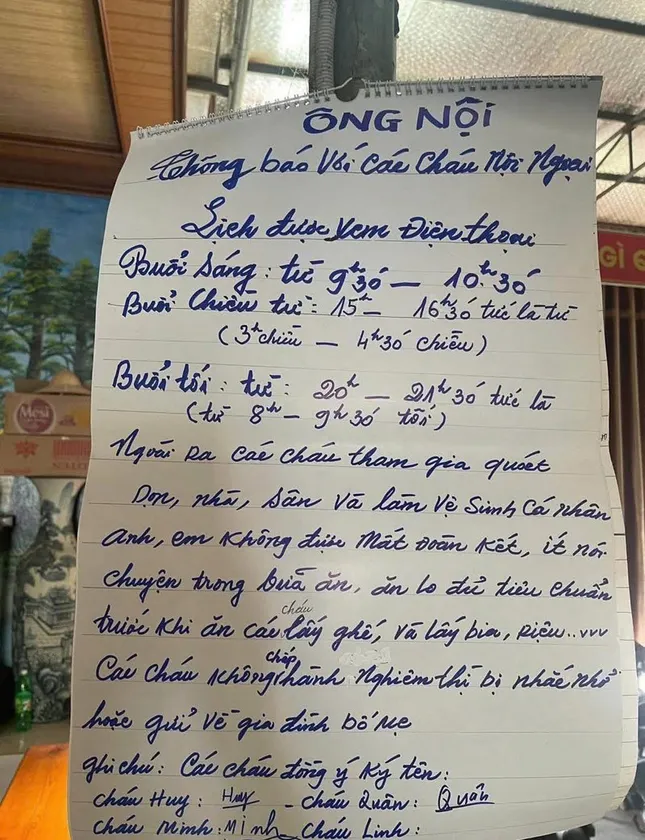 ÔNG NỘI
Thông báo Với các cháu Nội Ngoại
Lịch được xem Điện thoại
Buổi sáng: từ 9h30 — 10h30
Buổi Chiều từ: 15h — 16h30 tức là từ
(3h chiều — 4h30 chiều)
Buổi tối: từ: 20h — 21h30 tức là
(từ 8h — 9h30 tối)
Ngoài Ra các cháu tham gia quét
Dọn, nhà, sân và làm vệ sinh cá nhân
anh, em không được mất đoàn kết, ít nói
chuyện trong bữa ăn, ăn lo đủ tiêu chuẩn
trước khi ăn các cháu lấy ghế, và lấy bia, Riệu..vvv
Các cháu không chấp hành nghiêm thì bị nhắc nhở
hoặc gửi về gia đình bố mẹ
ghi chú: Các cháu đồng ý ký tên:
cháu Huy: Huy - cháu Quân: Quân
cháu Minh: Minh cháu Linh:
GÌ
Mesi